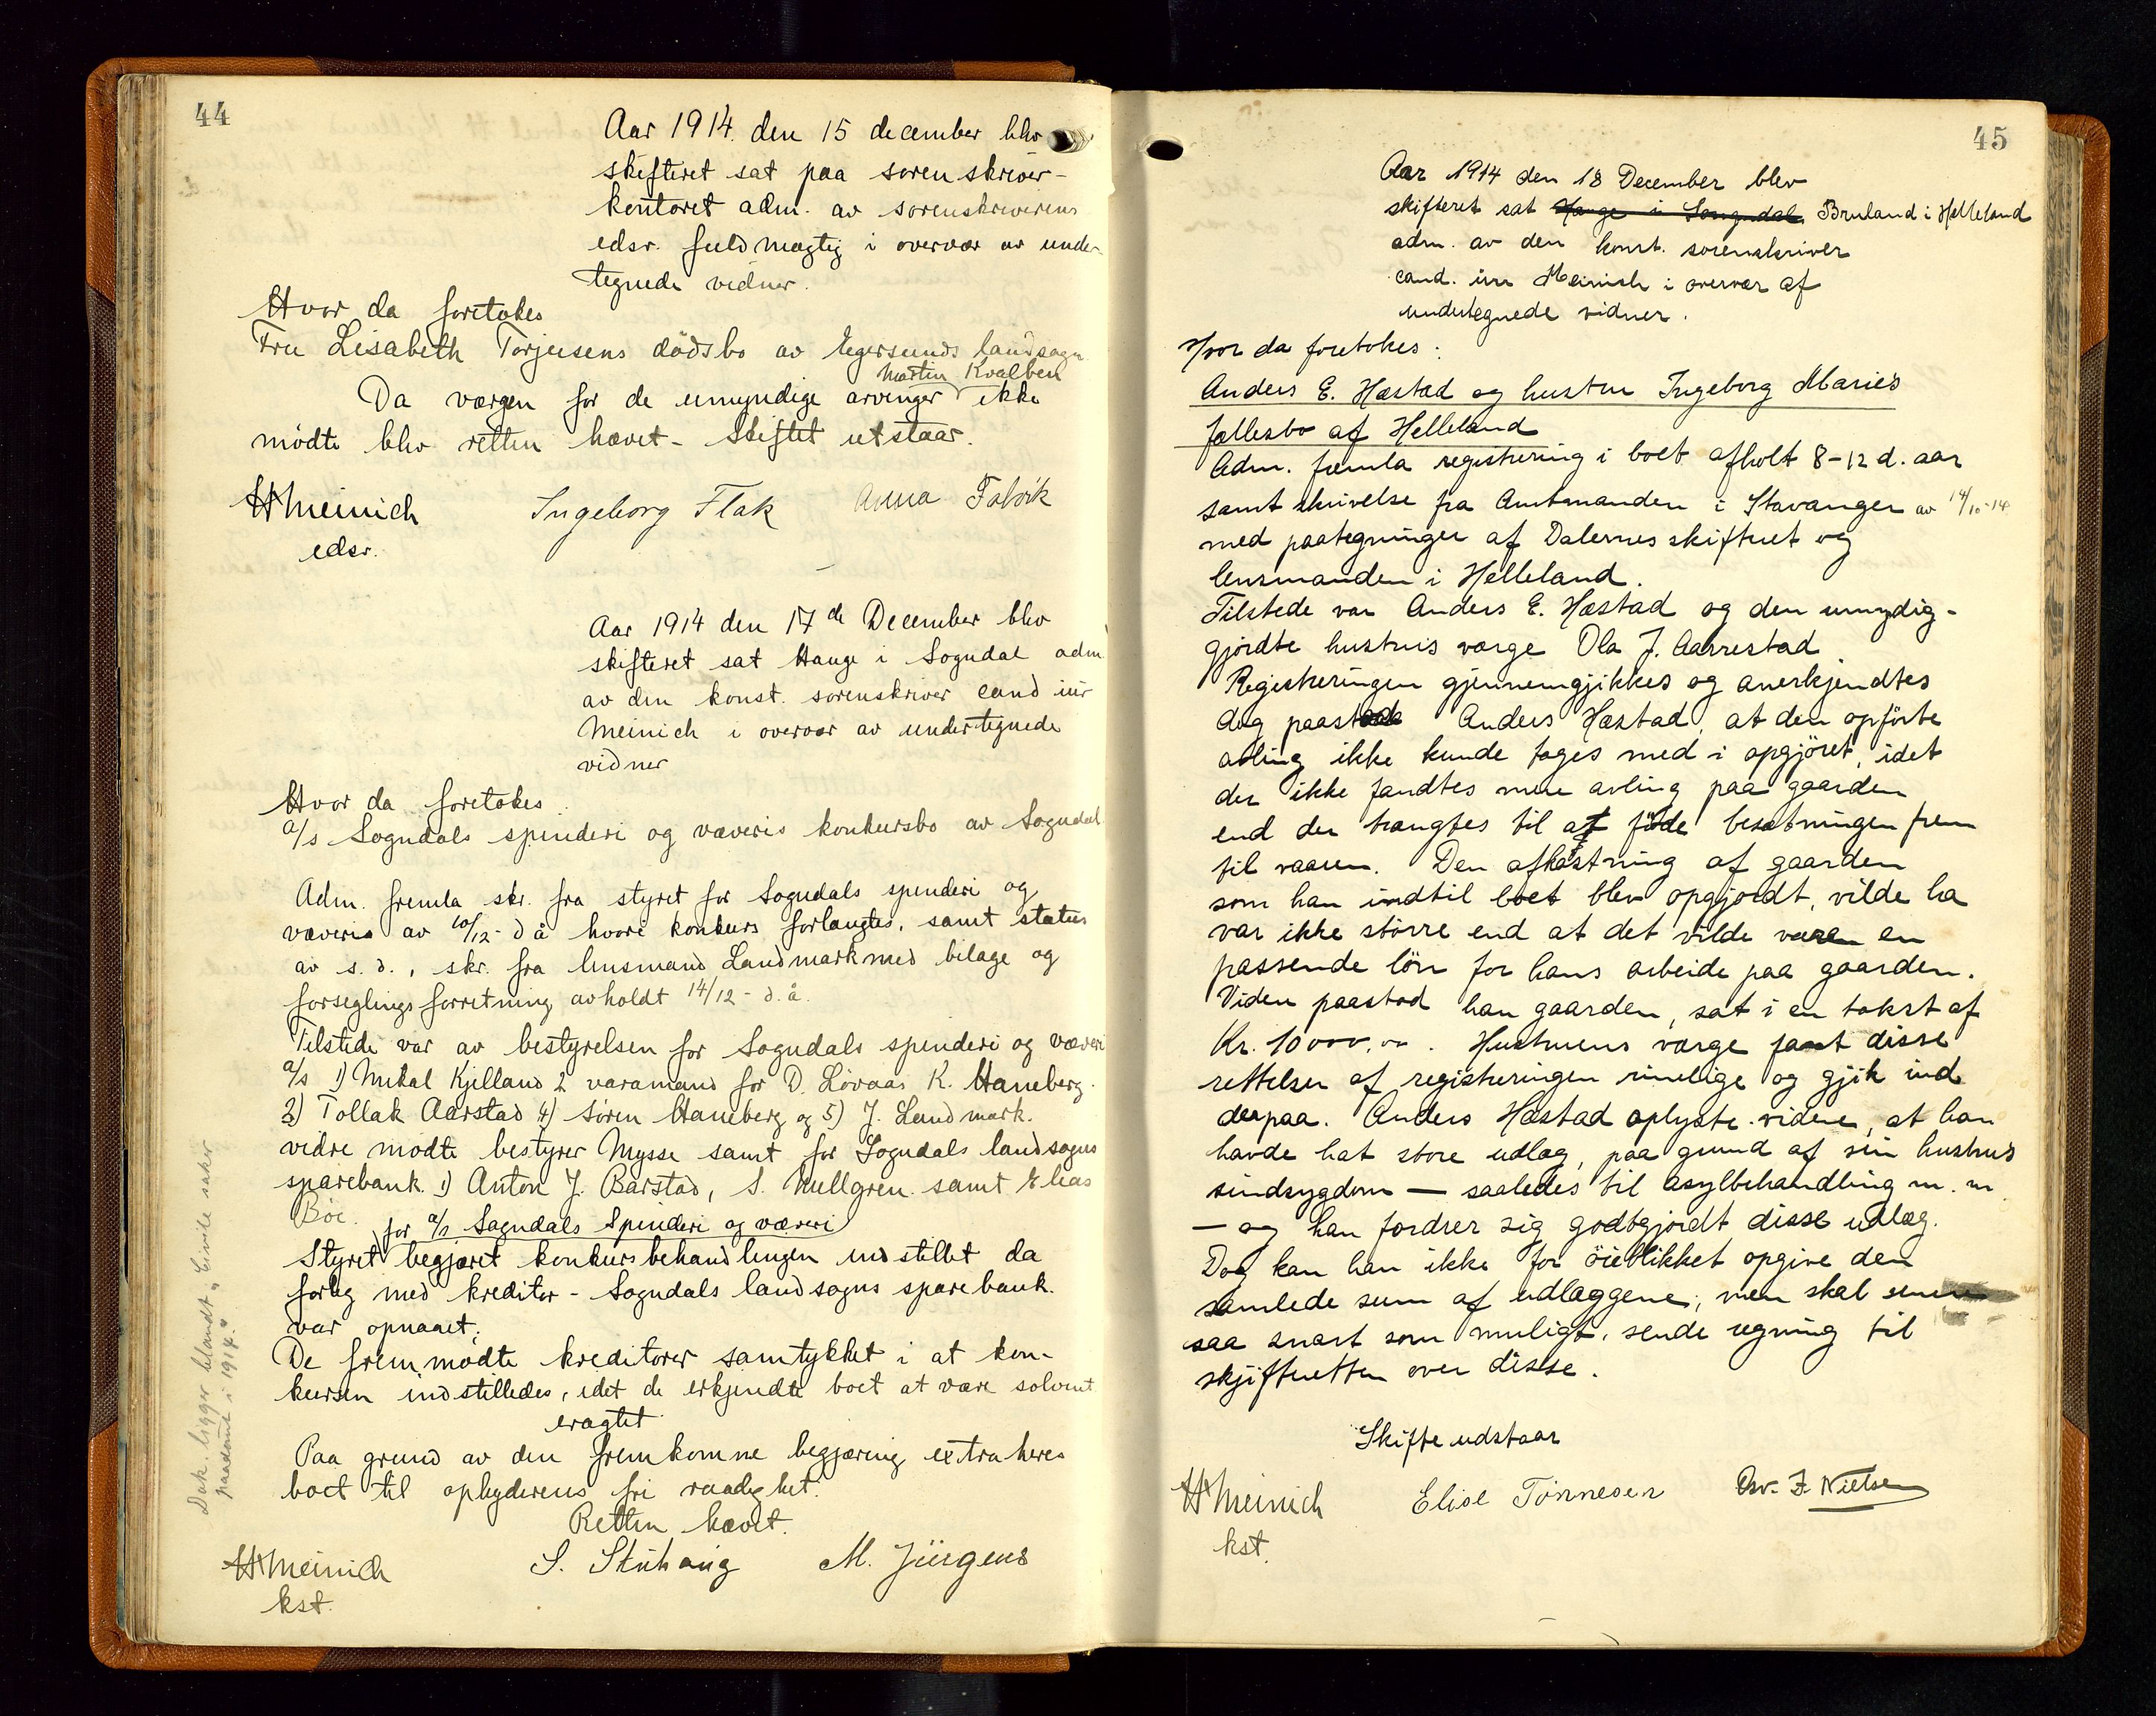 44
Aar 1914 den 15 december blev
skifteret sat paa sorenskriver-
kontoret adm. av sorenskriverens
edsv. fuldmægtig i overvær av under-
tegnede vidner.
Hvor da foretokes
Fru Lisabeth Torjusens dödsbo av Egersunds landsogn
Martin Kvalben
Da værgen for de umyndige arvinger ikke
mödte blev retten hævet - Skiftet utstaar.
HMeinich Ingeborg Flak Anna
edsv.
Aar 1914 den 17de December blev
skifteret sat Hauge i Sogndal adm
av den konst. sorenskriver cand iur
Meinich i overvær av undertegnede
vidner
Hvor da foretokes
a/s Sogndals spinderi og væveris konkursbo av Sogndal
Adm. fremla skr. fra styret for Sogndals spinderi og
væveris av 10/12- d å hvori konkurs forlangtes, samt status
av s. d., skr. fra lensmand Landmark med bilage og
forseglingsforretning avholdt 14/12- d. å.
Tilstede var av bestyrelsen for Sogndals spinderi og væveri
a/s 1) Mikal Kjelland 2 varamand for D. Lövaas K. Haneberg.
3) Tollak Aarstad 4) Sören Haneberg og 5) J. Landmark.
vidre mödte bestyrer Mysse samt for Sogndals landsogns
sparebank 1) Anton J. Barstad, S. Mellgren samt Elias
Böe.
for a/s Sogndals Spinderi og væveri
Styret begjæret konkursbehandlingen indstillet da
forlig med kreditor - Sogndals landsogns sparebank.
var opnaaet;
De fremmödte kreditorer samtykket i at kon-
kursen indstilledes, idet de erkjendte boet at være solvent
eragtet
Paa grund av den fremkomne begjæring extraheres
boet til opbyderens fri raadighet.
Retten hævet.
HMeinich S. Stuhaug M. Jürgens
kst.
Dok. ligger blandt „Civile saker
paadömt i 1914."
45
Aar 1914 den 18 December blev
skifteret sat Hauge i Songndal Bruland i Helleland
adm. av den konst. sorenskriver
cand. iur Meinich i overvær af
undertegnede vidner.
Hvor da foretokes:
Anders E. Hæstad og hustru Ingeborg Maries
fællesbo af Helleland
Adm. fremla registrering i boet afholt 8-12 d. aar
samt skrivelse fra Amtmanden i Stavanger av 14/10-14
med paategninger af Dalernes skifteret og
lensmanden i Helleland.
Tilstede var Anders E. Hæstad og den umydig-
gjordte hustrus værge Ola J. Aarrestad
Registreringen gjennemgjikkes og anerkjendtes
dog paastod Anders Hæstad, at den opförte
avling ikke kunde tages med i opgjöret, idet
der ikke fandtes mere avling paa gaarden
end der trængtes til at föde besætningen frem
til vaaren. Den afkastning af gaarden
som han indtil boet blev opgjordt, vilde ha
var ikke större end at det vilde være en
passende lön for hans arbeide paa gaarden.
Viden paastod han gaarden, sat i en takst af
Kr. 10000,00. Hustruens værge fant disse
rettelser af registreringen rimelige og gjik ind
derpaa. Anders Hæstad oplyste videre, at han
havde hat store udlæg, paa grund af sin hustrus
sindsygdom — saaledes til asylbehandling m. m
— og han fordrer sig godtgjordt disse udlæg.
Dog kan han ikke for öieblikket opgive den
samlede sum af udlæggene; men skal
saa snart som muligt, sende regning til
skjifteretten over disse.
Skifte udstaar
HMeinich Elise Tönnesen Osv. F. Nielsen
kst.